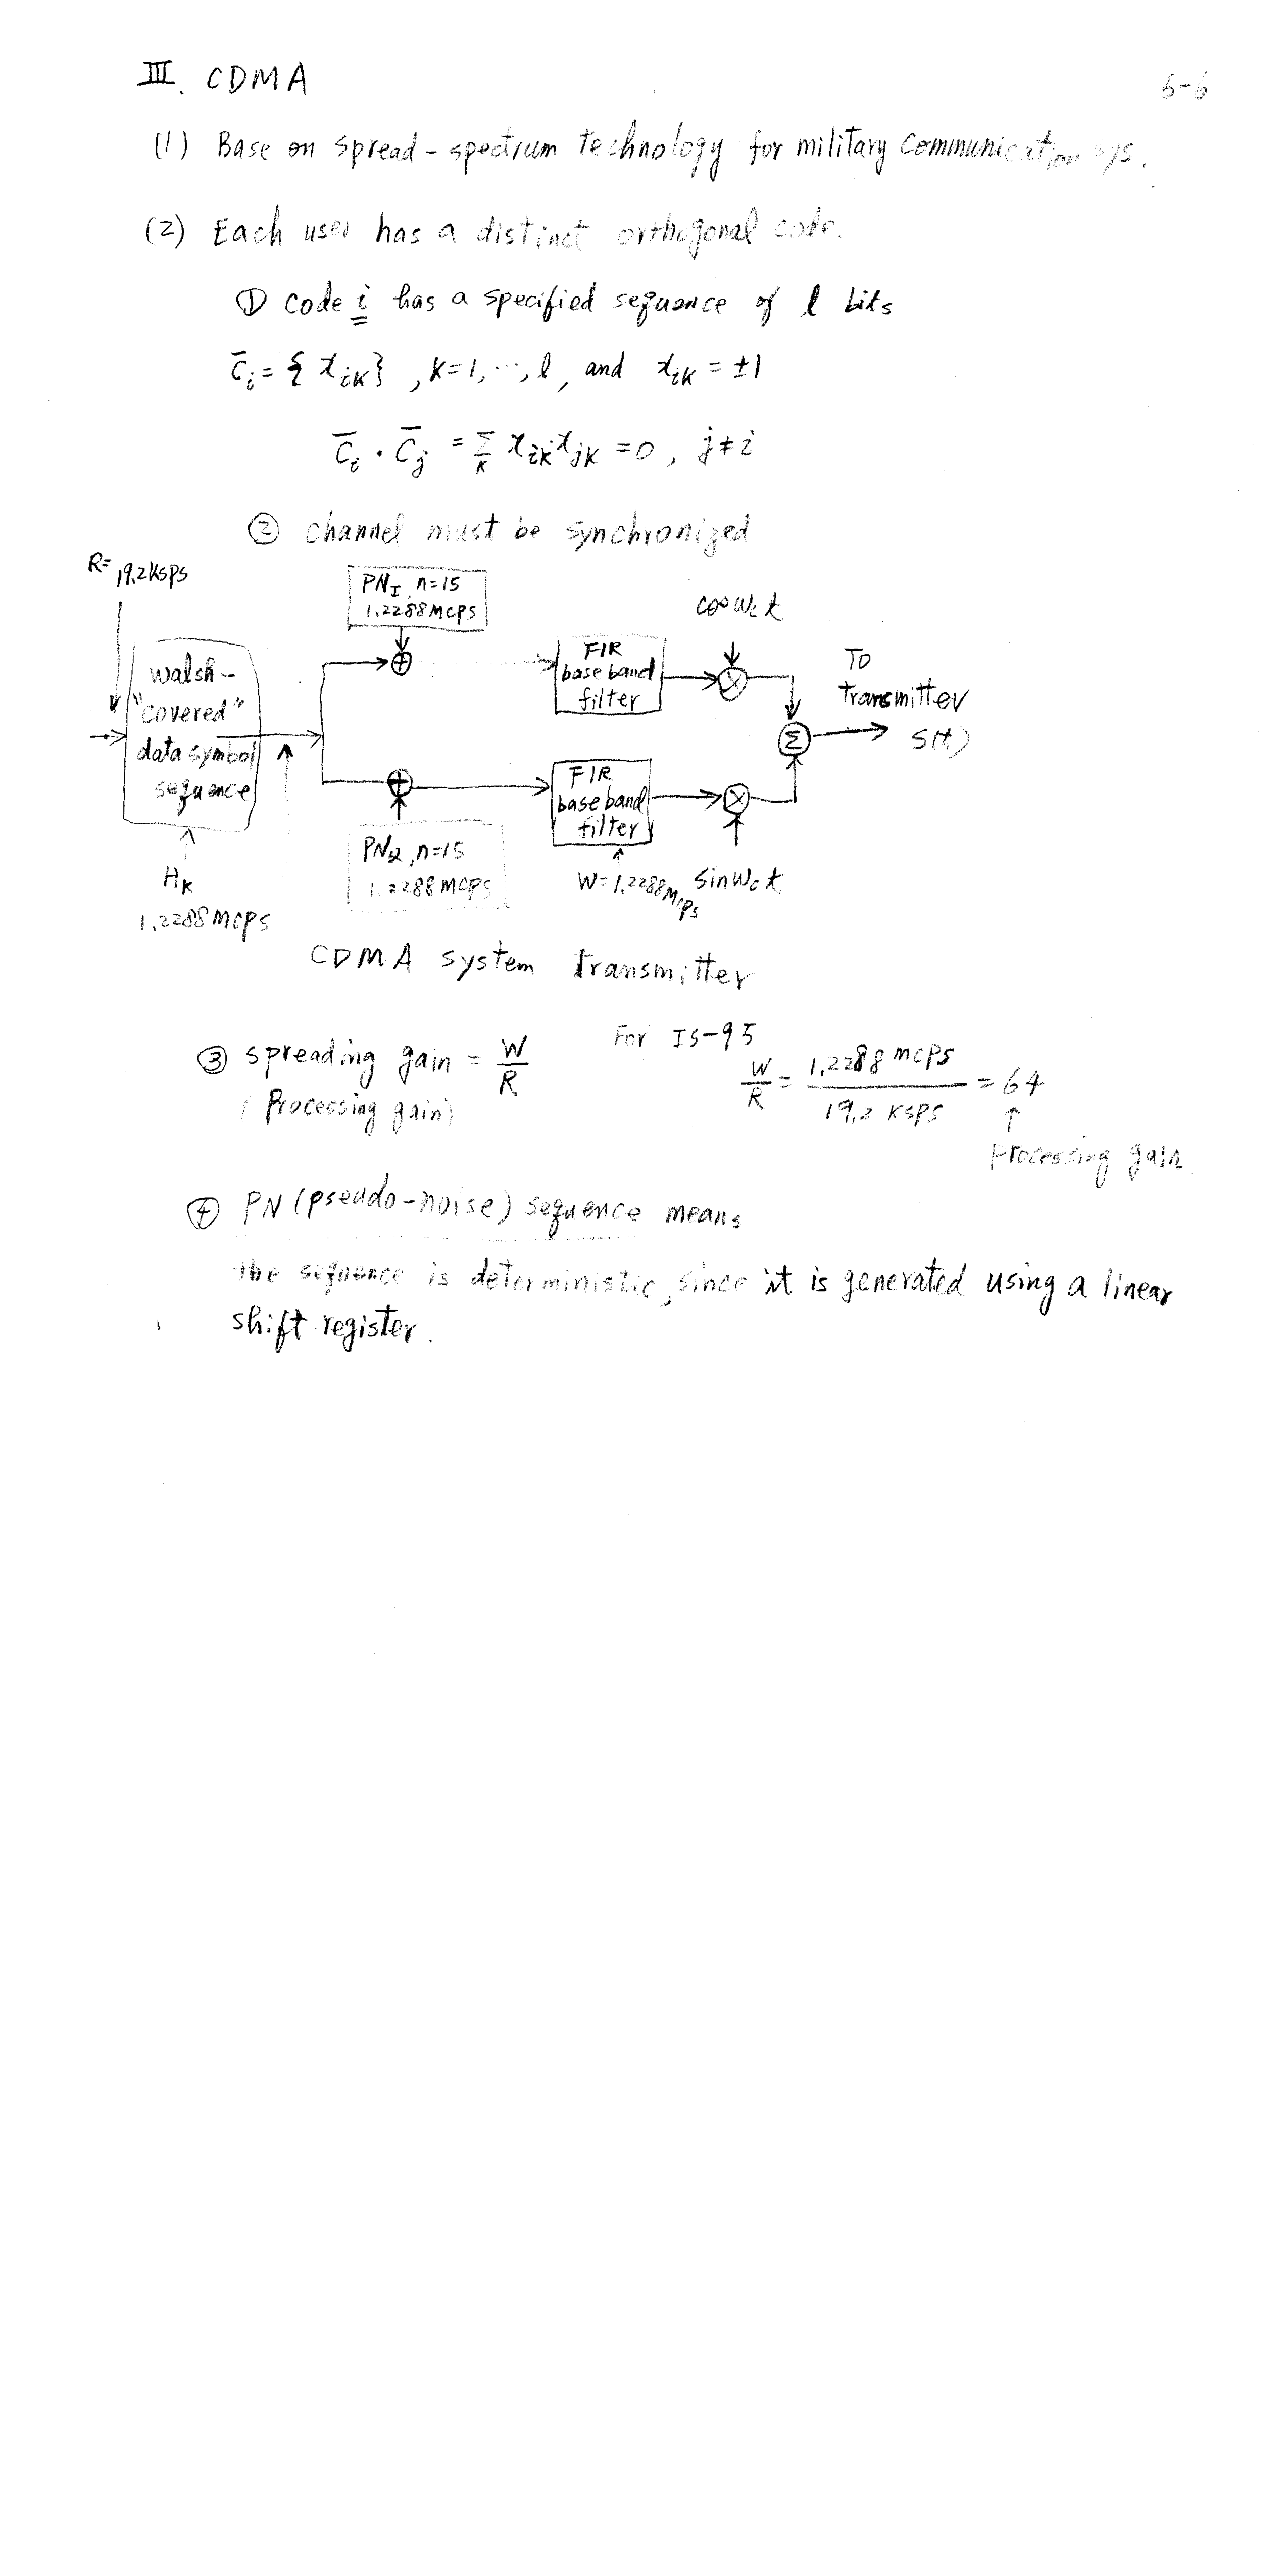 III. CDMA
5-6
(1) Base on spread-spectrum technology for military communication sys.
(2) Each user has a distinct orthogonal code.
① code i has a specified sequence of l bits
C̅ᵢ = { xᵢₖ } , k=1, ..., l, and xᵢₖ = ±1
C̅ᵢ · C̅ⱼ = Σₖ xᵢₖ xⱼₖ = 0 , j ≠ i
② channel must be synchronized
R= 19.2ksps
PN_I, n=15
1.2288 Mcps
cos Wc t
Walsh-
"covered"
data symbol
sequence
FIR
base band
filter
To
transmitter
S(t)
Σ
FIR
base band
filter
PN_Q, n=15
1.2288 Mcps
W=1.2288Mcps
sin Wc t
H_K
1.2288 Mcps
CDMA system transmitter
③ spreading gain = W/R
(Processing gain)
For IS-95
W/R = 1.2288 Mcps / 19.2 ksps = 64
↑
processing gain
④ PN (pseudo-noise) sequence means
the sequence is deterministic, since it is generated using a linear
shift register.